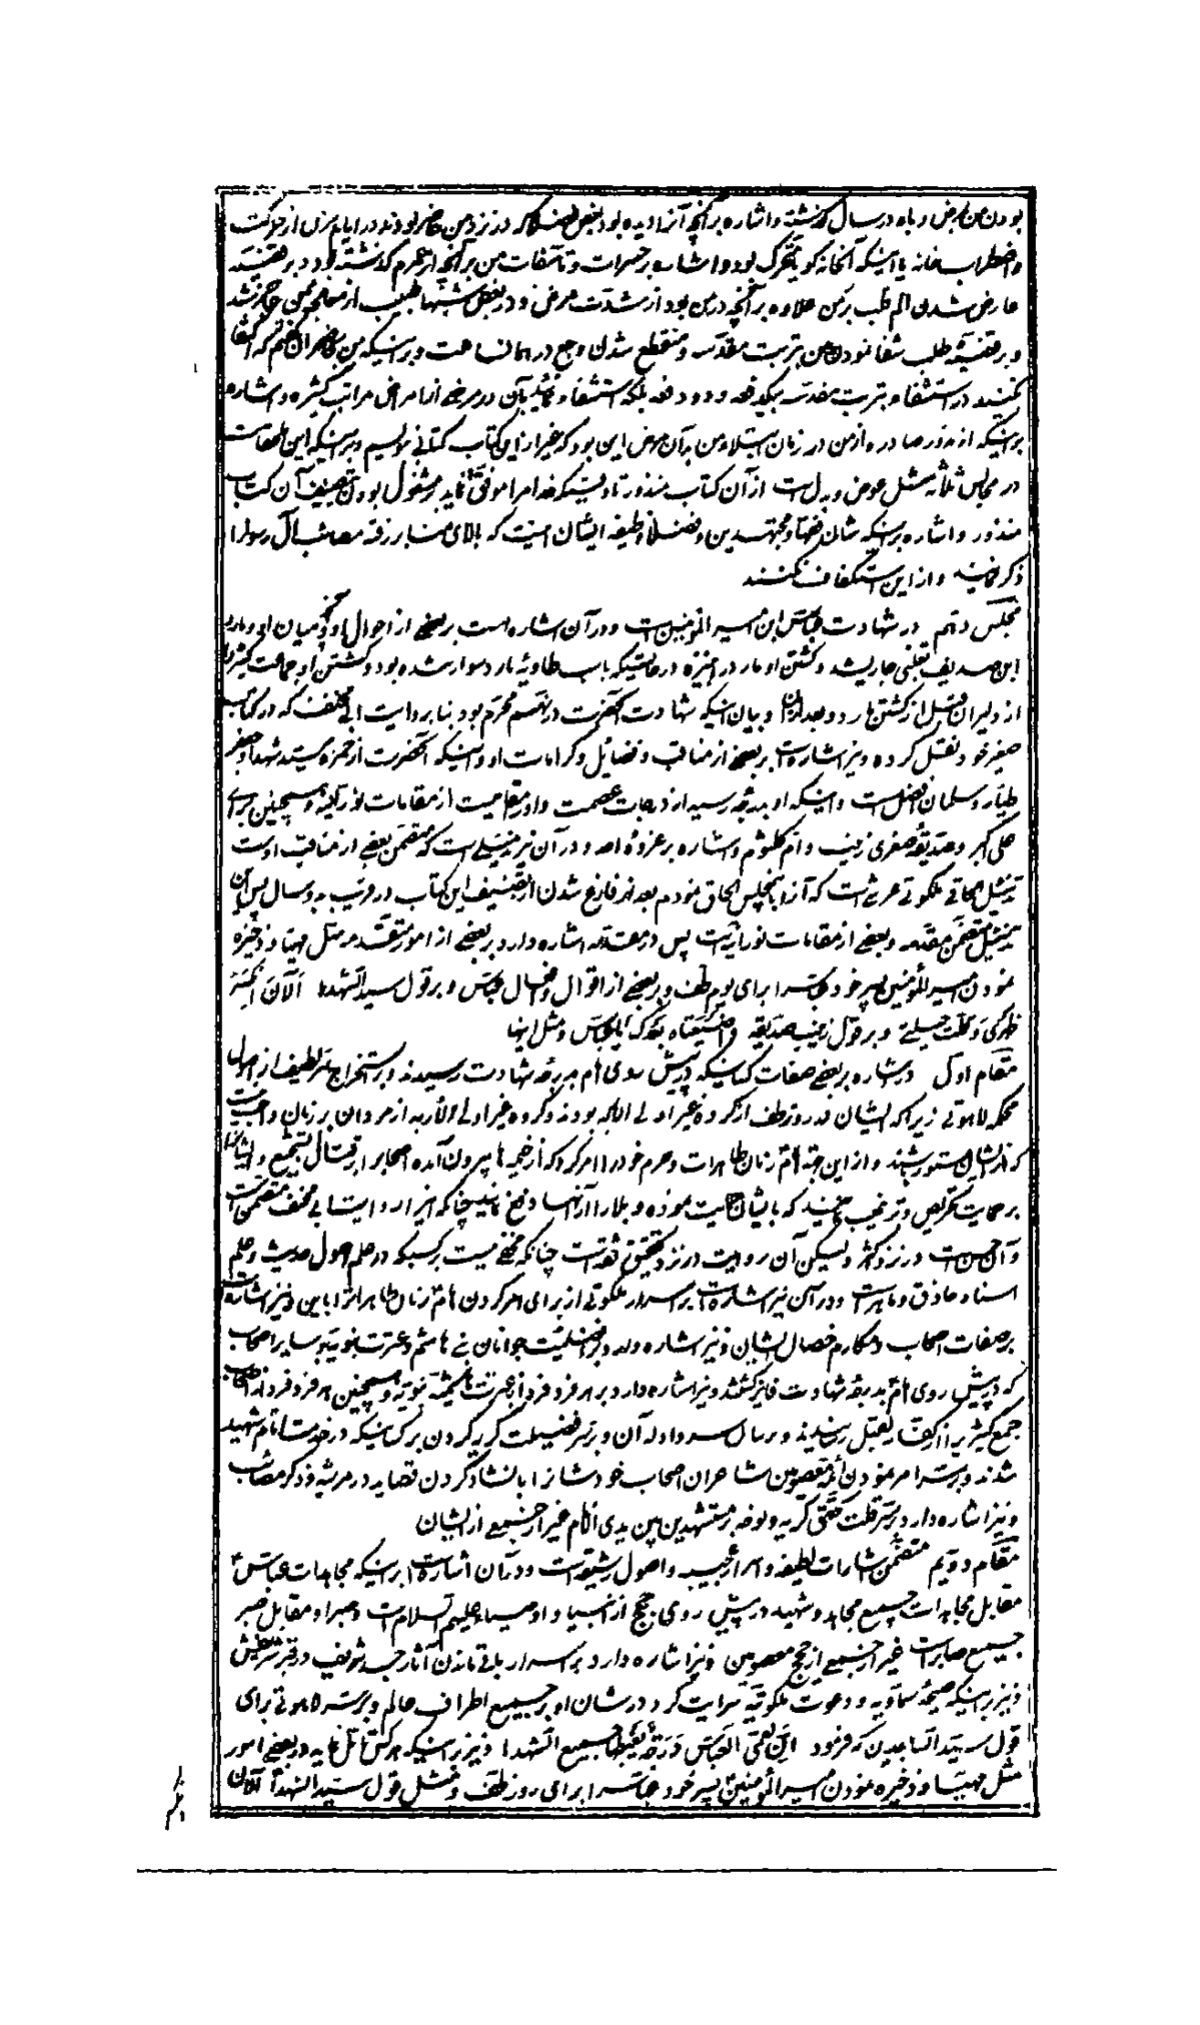 بودن من بمرض وباه در سال گذشته واشاره بر آنچه آنرا دیده بود بعض فضلا که در نزد من حاضر بودند در ایام مرض از حرکت
واضطراب خانه با اینکه آنخانه گویا متحرک بود واشاره بر حسرات وتأسفات من بر آنچه از عمرم گذشته بود وبر قضیه
عارض شدن الم قلب بر من علاوه بر آنچه در من بود از شدت مرض ودر بعض شبها طبیب از معالجه من عاجز شد
وبر قضیه طلب شفا نمودن من بتربت مقدسه ومنقطع شدن وجع در همانساعت وبر اینکه من بحاضران گفتم که اکتفا
نکنید در استشفاء بتربت مقدسه بیکدفعه ودو دفعه بلکه استشفاء نمائید بآن در مرضی از امراض مراتب کثیره واشاره
بر اینکه از نذور صادره از من در زمان ابتلاء من بآن مرض این بود که غیر از این کتاب کتابی بنویسم وبر اینکه این ملحقات
در مجالس ثلاثه مثل عوض وبدل است از آن کتاب منذور تا وقتیکه خدا مرا موفق نماید بر مشغول بودن بتصنیف آن کتاب
منذور واشاره بر اینکه شان فقهاء ومجتهدین وفضلا ووظیفه ایشان اینست که بالای منابر رفته مصائب آل رسول را
ذکر نمایند واز این استنکاف نکنند
مجلس دهم در شهادت عباس ابن امیر المؤمنین است ودر آن اشاره است بر بعضی از احوال او وآنچه میان او ومارد
ابن صدیف تغلبی جاری شد وکشتن او مارد را بنیزه در حالتیکه باسب طاویه مارد سوار شده بود وکشتن او جماعت کثیره را
از دلیران قبل از کشتن مارد وبعد از آن وبیان اینکه شهادت آنحضرت در نهم محرم بود بنا بر روایت ابی مخنف که در کتاب
صغیر خود نقل کرده ونیز اشاره است بر بعضی از مناقب وفضائل وکرامات او واینکه آنحضرت از حمزه سید شهدا وجعفر
طیار وسلمان افضل است واینکه او بدرجه رسید از درجات عصمت واو را مقامیست از مقامات نورانیه وهمچنین برای
علی اکبر وصدیقه صغری زینب وام کلثوم واشاره بر غزوه احد ودر آن نیز تذییلی است که متضمن بعضی از مناقب اوست
تذییل الحاقی ملکوتی عرشی است که آنرا باینمجلس الحاق نمودم بعد از فارغ شدن از تصنیف این کتاب در قریب به دو سال پس این
تذییل متضمن مقدمه وبعضی از مقامات نورانیه است پس در مقدمه اشاره دارد بر بعضی از امور متقدمه مثل مهیا وذخیره
نمودن امیر المؤمنین پسر خود عباس را برای یوم طف وبر بعضی از اقوال وافعال عباس وبر قول سید الشهدا الآن انکسر
ظهری وقلت حیلتی وبر قول زینب صدیقه واضیعتاه بعدک یا عباس ومثل اینها
مقام اول در اشاره بر بعضی صفات کسانیکه در پیش روی امام بدرجه شهادت رسیدند وبر استخراج سر لطیف از اصول
محکمه لاهوتی زیرا که ایشان در روز طف از گروه غیر اولی الاربه بودند وگروه غیر اولی الاربه از مردان بر زنان واجب نیست
که از ایشان مستور باشند واز این جهة امام زنان طاهرات وحرم خود را امر کرد که از خیمه ها بیرون آمده اصحاب را بر قتال تشجیع وایشانرا
بر حمایت تحریص وترغیب نمایند که با ایشان حمایت نموده وبلا را از آنها دفع نمایند چنانکه اینرا روایت ابی مخنف متضمن است
وآن حسن است در نزد اکثر ولیکن آن روایت در نزد تحقیق ثقه است چنانکه مخفی نیست بر کسیکه در علم اصول حدیث وعلم
اسناد حاذق وماهر است ودر آن نیز اشاره است بر اسرار ملکوتی از برای امر کردن امام زنان طاهرات را باین ونیز اشاره است
بر صفات اصحاب ومکارم خصال ایشان ونیز اشاره دارد بر افضلیت جوانان بنی هاشم وعترت نبویه بر سایر اصحاب
که در پیش روی امام بدرجه شهادت فایز گشتند ونیز اشاره دارد بر هر فرد فرد از عترت هاشمیه نبویه وهمچنین هر فرد فرد از اصحاب
جمع کثیری را از کفار بقتل رسانیدند وبر مآل اسرار وادله آن وبر سر فضیلت گریه کردن بر کسانیکه در خدمت امام شهید
شدند وبر سر امر نمودن ائمه معصومین شاعران اصحاب خودشان را با انشاد کردن قصاید در مرثیه وذکر مصائب
ونیز اشاره دارد بر سر قلت تحقق گریه ونوحه بر مستشهدین بین یدی الامام غیر از جمعی از ایشان
مقام دویم متضمن اشارات لطیفه واسرار عجیبه واصول رشیقه است ودر آن اشاره است بر اینکه مجاهدات عباس
مقابل مجاهدات جمیع مجاهد وشهید در پیش روی حجج از انبیاء واوصیاء علیهم السلام است وصبر او مقابل صبر
جمیع صابر است غیر از جمعی از حجج معصومین ونیز اشاره دارد بر اسرار باقی ماندن آثار جسد شریف در قبر شریفش
ونیز بر اینکه صیحه سماویه ودعوت ملکوتیه سرایت کرد در شان او بر جمیع اطراف عالم وبر سر لاهوتی برای
قول سید الساجدین که فرمود ان لعمی العباس درجه یغبطها جمیع الشهدا ونیز بر اینکه هر کس تأمل نماید در بعضی امور
مثل مهیا وذخیره نمودن امیر المؤمنین پسر خود عباس را برای روز طف ومثل قول سید الشهدا الآن